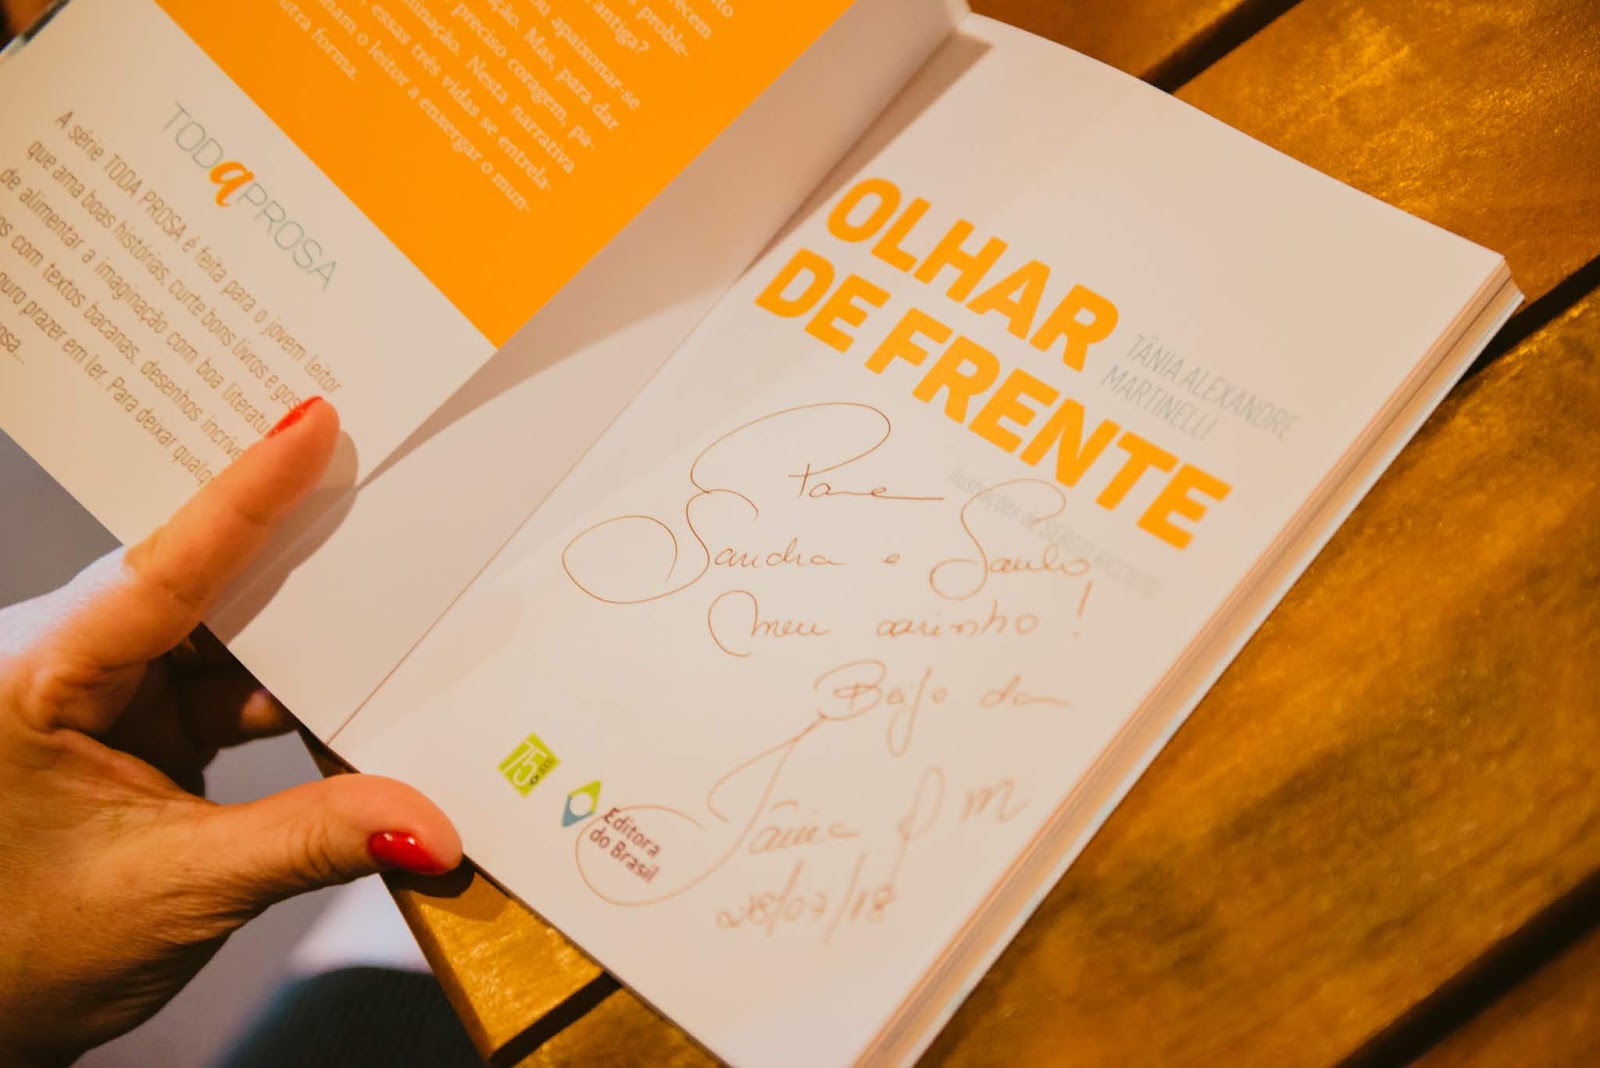 proble-
antiga?
apaixonar-se
ção. Mas, para dar
preciso coragem, pa-
minação. Nesta narrativa
, essas três vidas se entrela-
nham o leitor a enxergar o mun-
utra forma.
TODaPROSA
A série TODA PROSA é feita para o jovem leitor
que ama boas histórias, curte bons livros e gos
de alimentar a imaginação com boa literatu
com textos bacanas, desenhos incríve
puro prazer em ler. Para deixar qualq
osa...
OLHAR
DE FRENTE
TÂNIA ALEXANDRE
MARTINELLI
ilustrações de
Para
Sandra e Saulo
Meu carinho!
Beijo da
Tânia A M
28/07/18
75
Editora
do Brasil